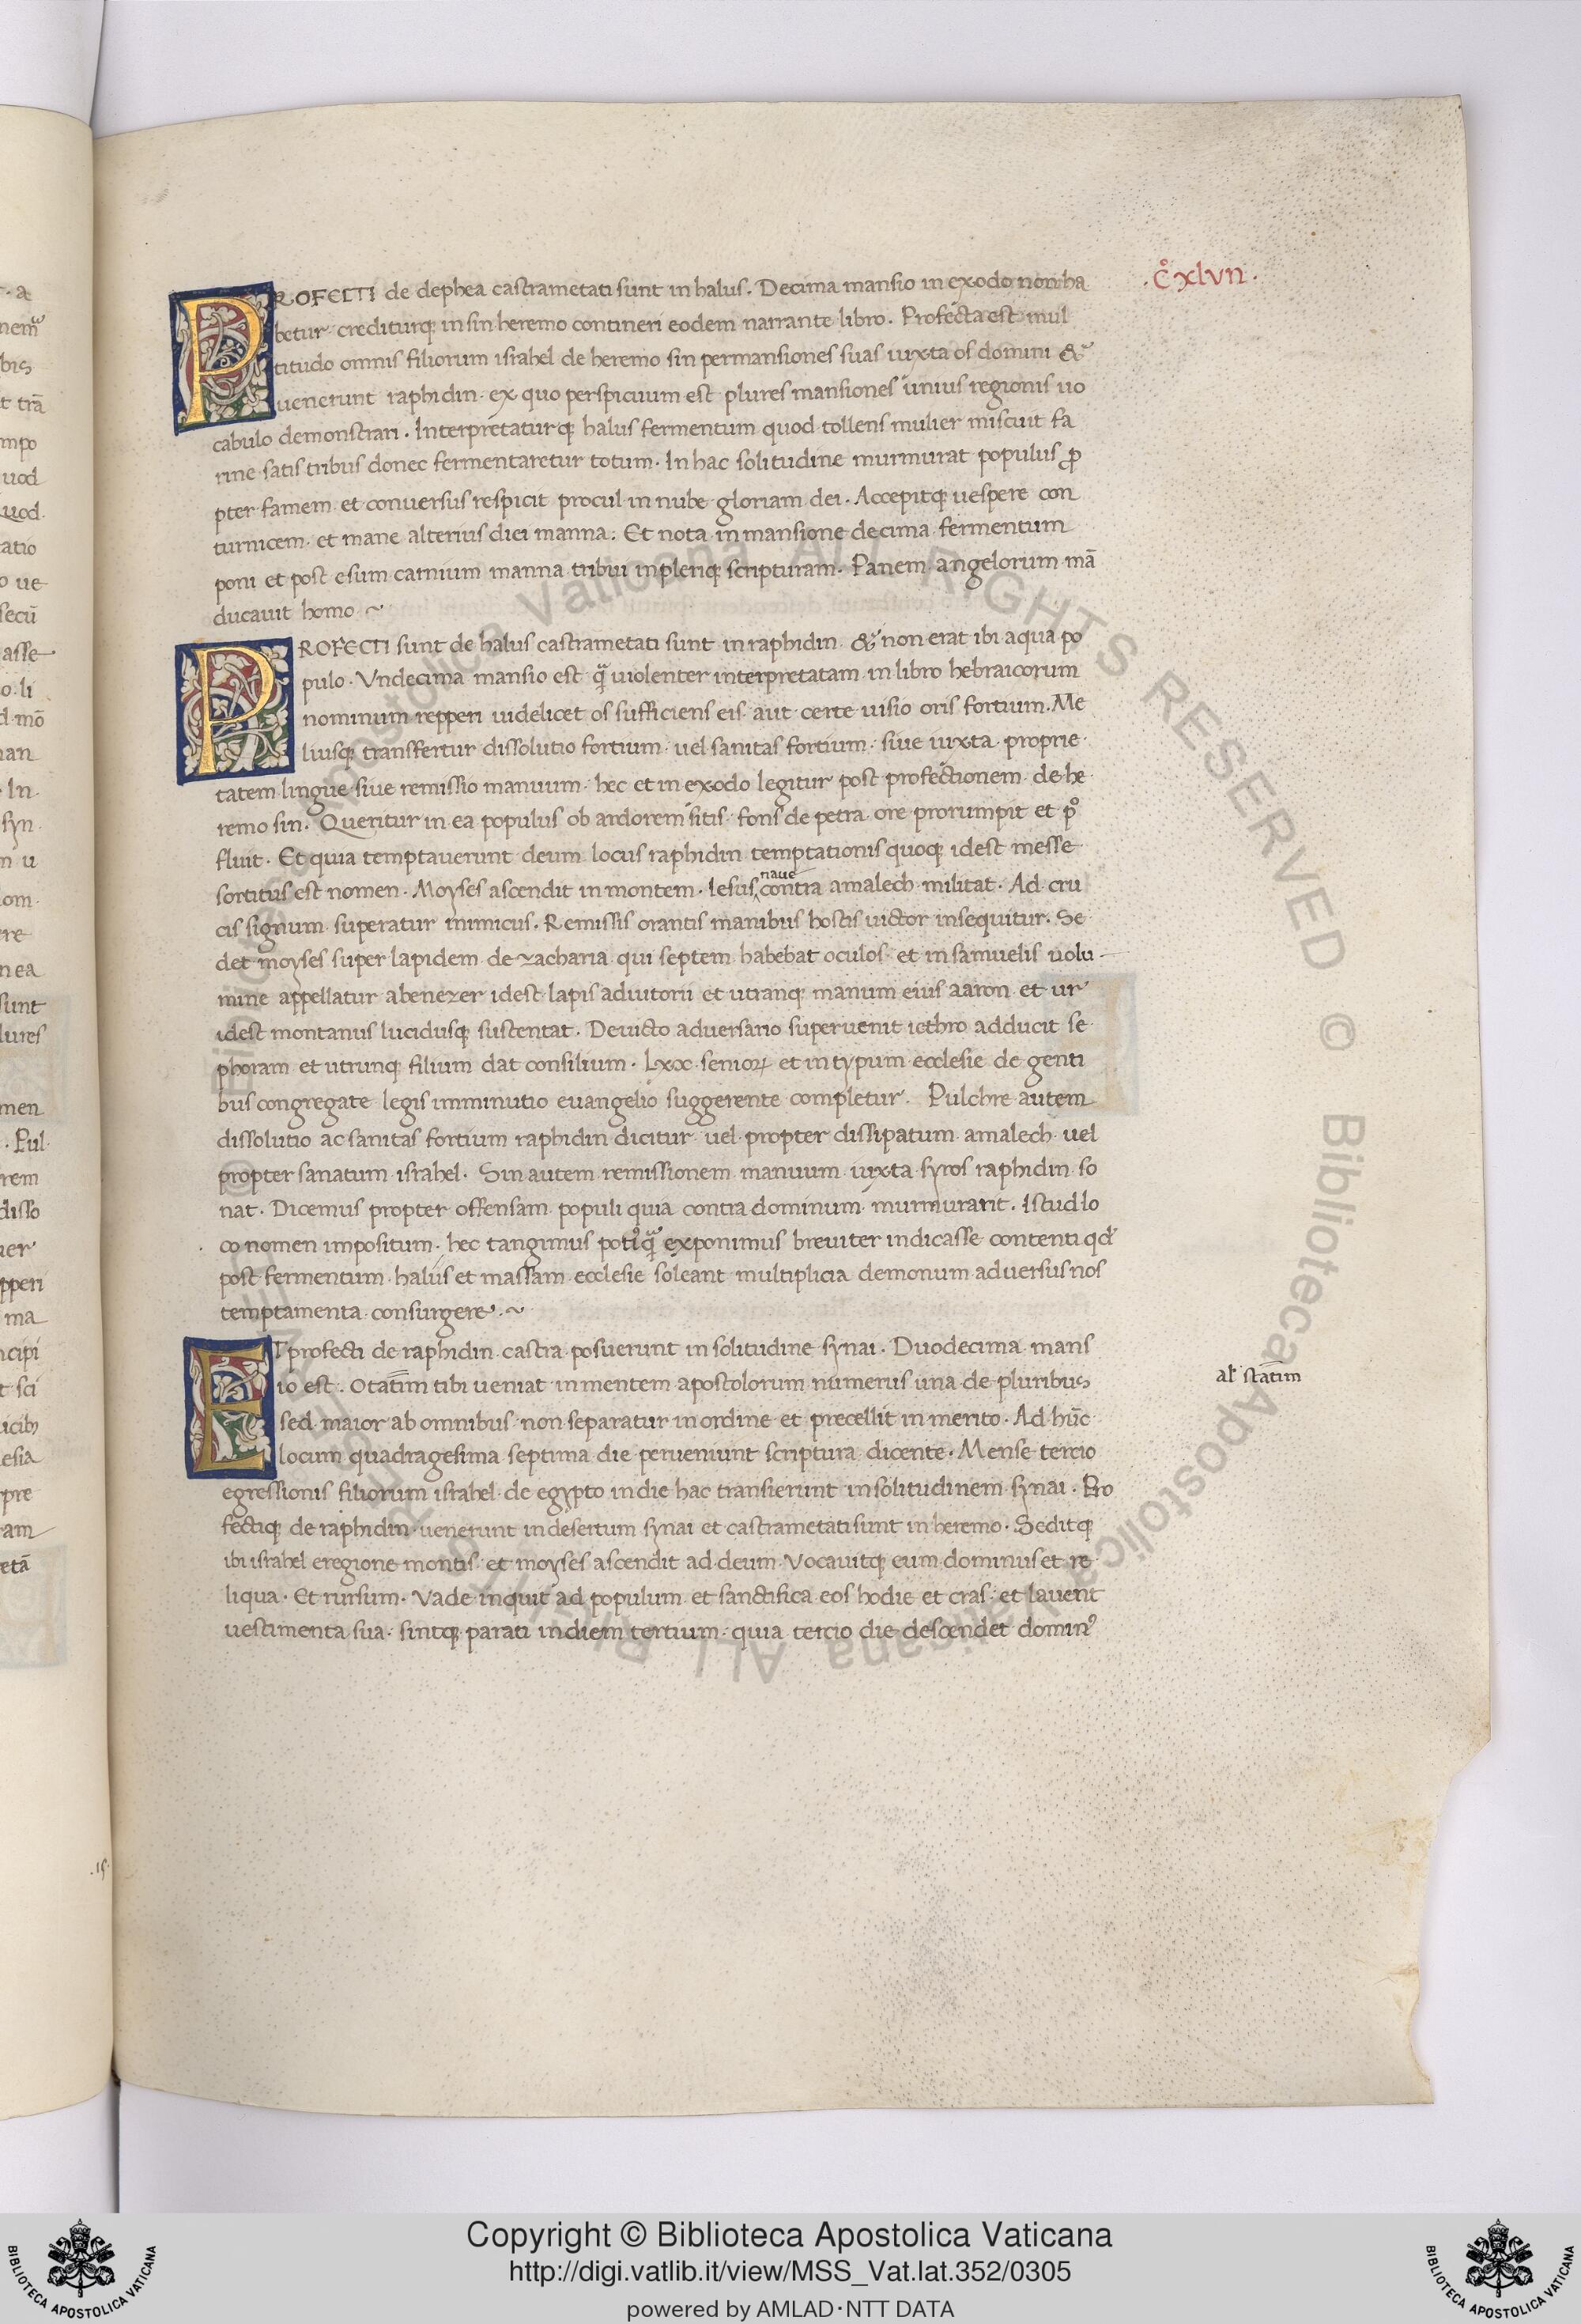 .c̊xlvii.
PROFECTI de dephea castrametati sunt in halus. Decima mansio in exodo non ha
betur crediturq; in sin heremo contineri eodem narrante libro. Profecta est mul
titudo omnis filiorum israhel de heremo sin per mansiones suas iuxta os domini &
uenerunt raphidin. ex quo perspicuum est plures mansiones unius regionis uo
cabulo demonstrari. Interpretaturq; halus fermentum quod tollens mulier miscuit fa
rine satis tribus donec fermentaretur totum. In hac solitudine murmurat populus ꝓ
pter famem et conuersus respicit procul in nube gloriam dei. Accepitq; uespere con
turnicem. et mane alterius diei manna. Et nota in mansione decima fermentum
poni et post esum carnium manna tribui inpleriq; scripturam. Panem angelorum mā
ducauit homo ~
PROFECTI sunt de halus castrametati sunt in raphidin. & non erat ibi aqua po
pulo. Vndecima mansio est q̄ uiolenter interpretatam in libro hebraicorum
nominum repperi uidelicet os sufficiens eis aut certe uisio oris fortium. Me
liusq; transfertur dissolutio fortium. uel sanitas fortium. siue iuxta proprie
tatem lingue siue remissio manuum. hec et in exodo legitur post profectionem de he
remo sin. Queritur in ea populus ob ardorem sitis. fons de petra ore prorumpit et p̊
fluit. Et quia temptauerunt deum locus raphidin temptationis quoq; idest messe
sortitus est nomen. Moyses ascendit in montem. Iesus naue contra amalech militat. Ad cru
cis signum superatur inimicus. Remissis orantis manibus hostis uictor insequitur. Se
det moyses super lapidem de zacharia qui septem habebat oculos et in samuelis uolu
mine appellatur abenezer idest lapis adiutorii et utranq; manum eius aaron et ur
idest montanus lucidusq; sustentat. Deuicto aduersario superuenit iethro adducit se
phoram et utrunq; filium dat consilium. Lxx senioꝝ et in typum ecclesie de genti
bus congregate legis imminutio euangelio suggerente completur. Pulchre autem
dissolutio ac sanitas fortium raphidin dicitur uel propter dissipatum amalech uel
propter sanatum israhel. Sin autem remissionem manuum iuxta syros raphidin so
nat. Dicemus propter offensam populi quia contra dominum murmurarit. Istud lo
co nomen impositum. hec tangimus poti᷒q̄ exponimus breuiter indicasse contenti qd̄
post fermentum halus et massam ecclesie soleant multiplicia demonum aduersus nos
temptamenta consurgere. ~
ET profecti de raphidin castra posuerunt in solitudine synai. Duodecima mans
io est. Otatim tibi ueniat in mentem apostolorum numerus una de pluribus
al̄ statim
sed maior ab omnibus non separatur in ordine et precellit in merito. Ad hūc
locum quadragesima septima die perueniunt scriptura dicente. Mense tercio
egressionis filiorum israhel de egypto in die hac transierunt in solitudinem synai. Pro
fectiq; de raphidin uenerunt in desertum synai et castrametati sunt in heremo. Seditq;
ibi israhel eregione montis. et moyses ascendit ad deum. Vocauitq; eum dominus et re
liqua. Et rursum. Vade inquit ad populum et sanctifica eos hodie et cras. et lauent
uestimenta sua. sintq; parati in diem tertium. quia tercio die descendet domin᷒
Copyright © Biblioteca Apostolica Vaticana
http://digi.vatlib.it/view/MSS_Vat.lat.352/0305
powered by AMLAD·NTT DATA